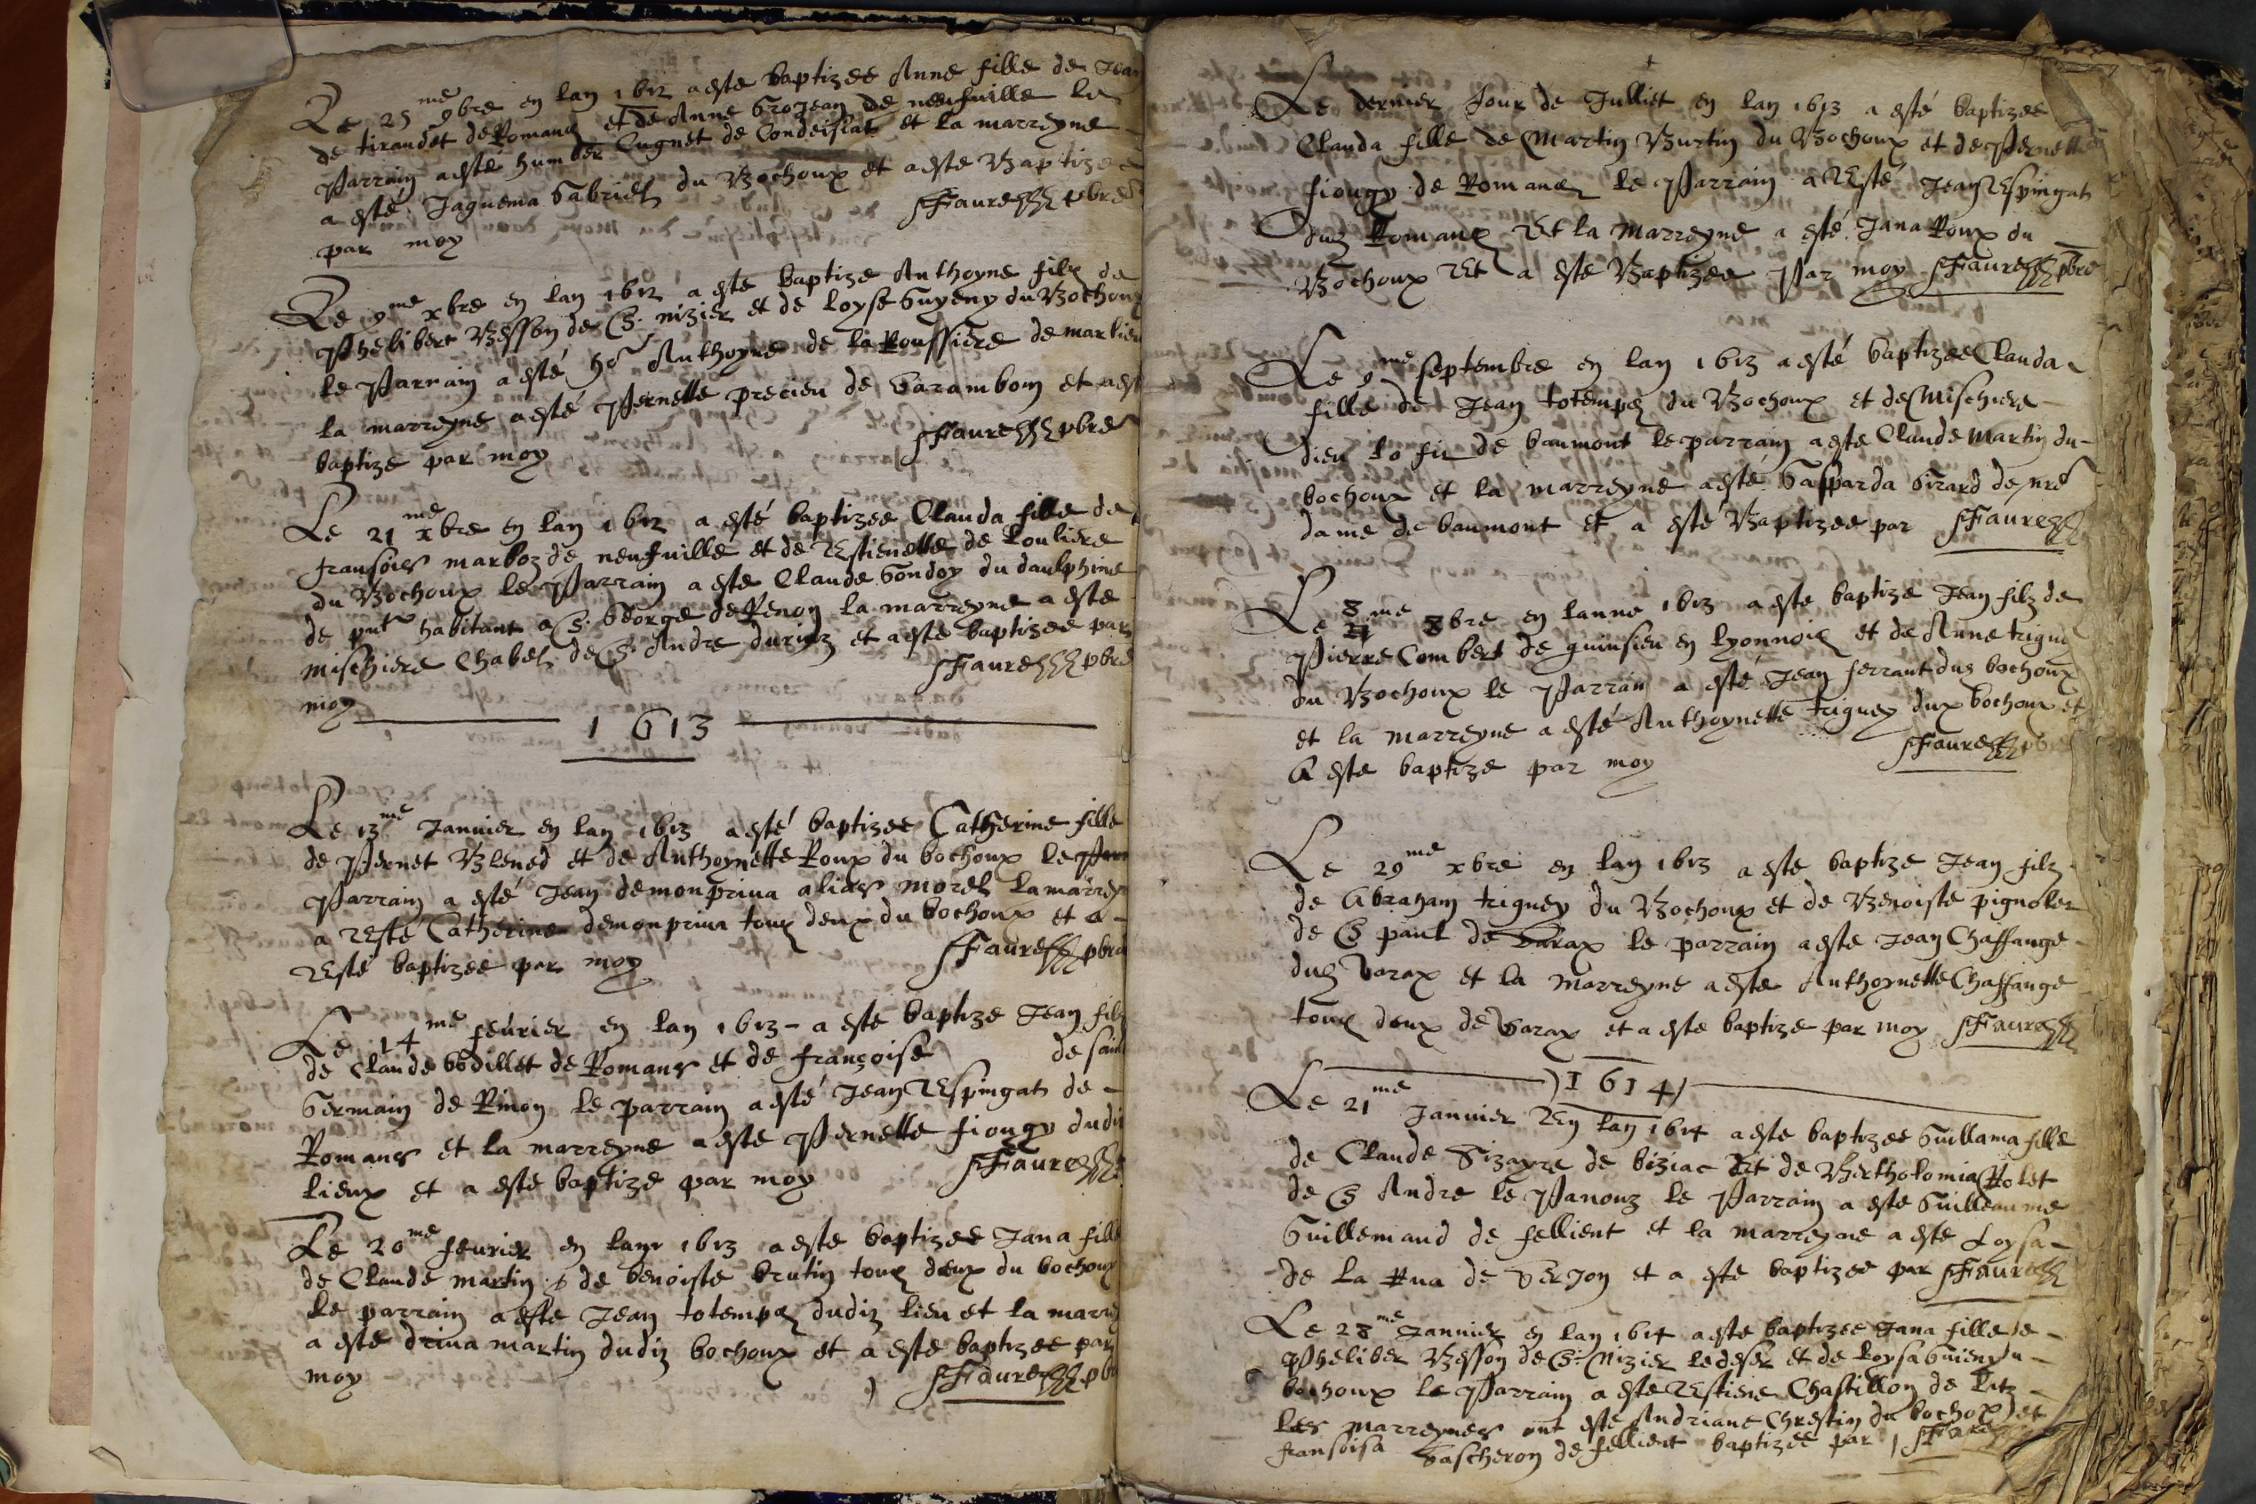 Le 25me 9bre en lan 1612 a esté baptizee Anne fille de Jean
de tirandet de Romans et de Anne Grojean de neufuille le
Parrain a esté humber Cugnet de Condeisiat et la marreyne
a esté Jaquema Gabriel du Bochoux et a esté Baptizee
par moy FFaure pbre
Le 9me xbre en lan 1612 a esté baptize Anthoyne filz de
Phelibert Besson de S. nizier et de Loyse Guyeny du Bochoux
le Parrain a esté Anthoyne de la Roussiere de marlieu
la marreyne a esté Pernette precieu de Varambon et a est
baptize par moy FFaure pbre
Le 21me xbre en lan 1612 a esté baptizee Clauda fille de
fransois marboz de neufuille et de Estienette de Louliere
du Bochoux le Parrain a este Claude Gondoy du daulphine
de pnt habitant a S. George de Renon la marreyne a este
mischiere Chabel de S. Andre duriaz et a este baptizee par
moy FFaure pbre
1613
Le 13me Januier en lan 1613 a esté baptizee Catherine fille
de Pernet Blened et de Anthoynette Roux du bochoux le
Parrain a esté Jean demonpriua alias morel la marrey
a Esté Catherine demonpriua tous deux du bochoux et a
Esté baptizee par moy FFaure pbre
Le 14me feurier en lan 1613 a este baptize Jean filz
de Claude bodillet de Romans et de françoise de saint
Germain de Rinon le parrain a esté Jean Espingat de
Romans et la marreyne a este Pernette fiougy dudit
lieux et a este baptize par moy FFaure
Le 20me feurier en lann 1613 a este baptizee Jana fille
de Claude martin & de benoiste brutin tous deux du bochoux
le parrain a este Jean totemps dudiz lieu et la marrey
a este martin dudiz bochoux et a este baptizee par
moy FFaure pbre
Le dernier Jour de Julliet en lan 1613 a esté baptizee
Clauda fille de Martin Burtin du Bochoux et de Pernette
fiougy de Romans le Parrain a Esté Jean Espingat
duz Romans Et la Marreyne a esté Jana Roux du
Bochoux Et a este Baptizee Par moy FFaure pbre
Le 9me septembre en lan 1613 a esté baptizee Clauda
fille de Jean totemps du Bochoux et de Mischiere
dieu lo fit de baumont le parrain a este Claude Martin du
bochoux et la marreyne a esté Gasparda Girard de nre
dame de baumont et a esté Baptizee par FFaure
Le 8me 8bre en lanne 1613 a este baptize Jean filz de
Pierre Combert de guinsieu en lyonnois et de Anne triguey
du Bochoux le Parrain a esté Jean ferrant dus bochoux
et la marreyne a esté Anthoynette triguey dux bochoux et
A este baptize par moy FFaure pbre
Le 29me xbre en lan 1613 a este baptize Jean filz
de Abraham triguey du Bochoux et de Benoiste pignoler
de S paul de Varax le parrain a este Jean Chaffange
duz Varax et la Marreyne a este Anthoynette Chaffange
tous deux de Varax et a este baptize par moy FFaure
1614
Le 21me Januier En lan 1614 a este baptizee Guillama fille
de Claude Sizayre de biziac Et de Bertholomia Rolet
de S Andre le Panouz le Parrain a este Guilleaume
Guillemaud de fellient et la marreyne a este Loysa
de la Rua de Verjon et a este baptizee par FFaure
Le 28me Januier en lan 1614 a este baptizee Jana fille de
Pheliber Besson de S. Nizier ledeser et de Loysa Guieny du
bochoux le Parrain a este Estiene Chastillon de
les marreynes ont este Andriane Chrestin du bochox et
fransoisa Vascheron de fellient baptizee par FFaure